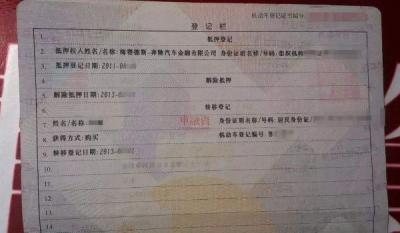 登记栏
机动车登记证书编号:
1. 抵押登记
2. 抵押权人姓名/名称:梅赛德斯-奔驰汽车金融有限公司 身份证明名称/号码:组织机构
3. 抵押登记日期:2011-0
4. 解除抵押
5. 解除抵押日期:2013-0
6. 转移登记
7. 姓名/名称: 身份证明名称/号码:居民身份证/
8. 获得方式:购买 机动车登记编号:
9. 转移登记日期:2013-0
10
11
12
13
14